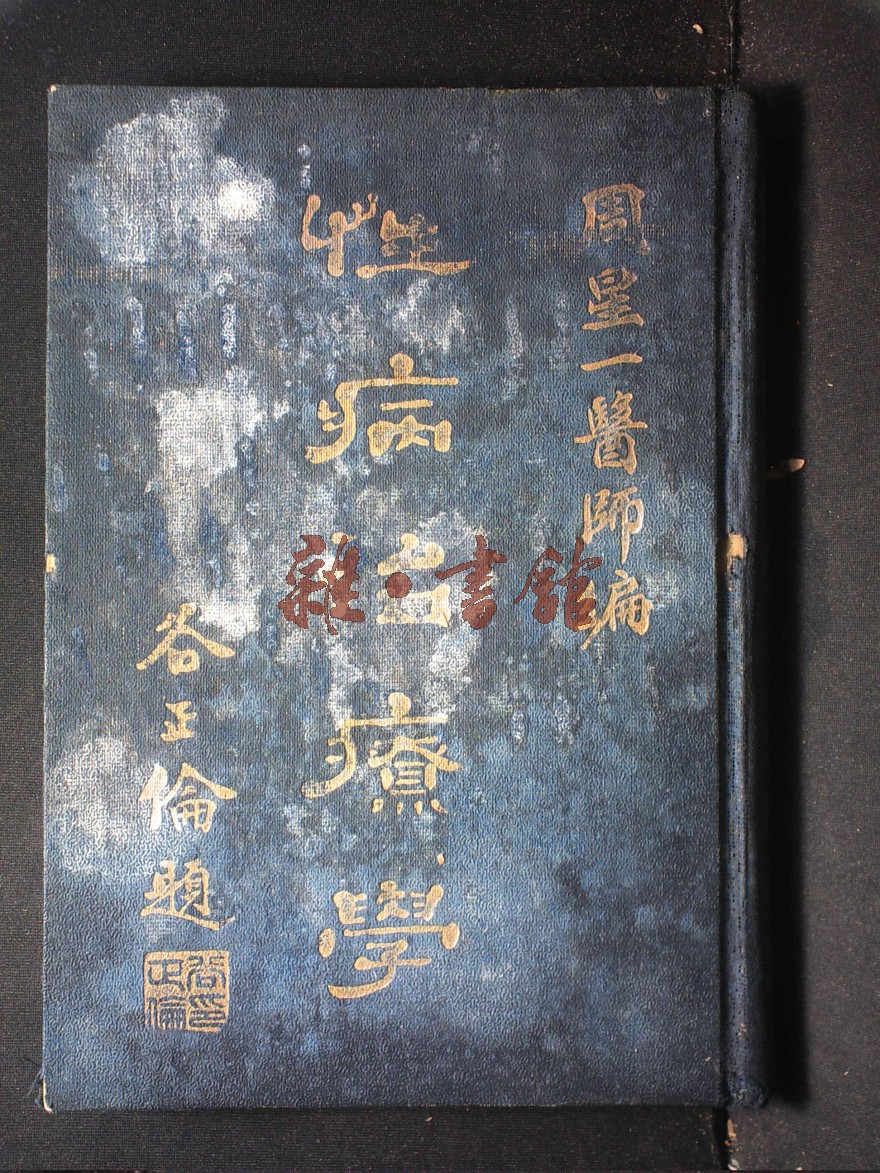 周星一醫師編
性病治療學
谷正倫題
谷正倫印
雜·書館